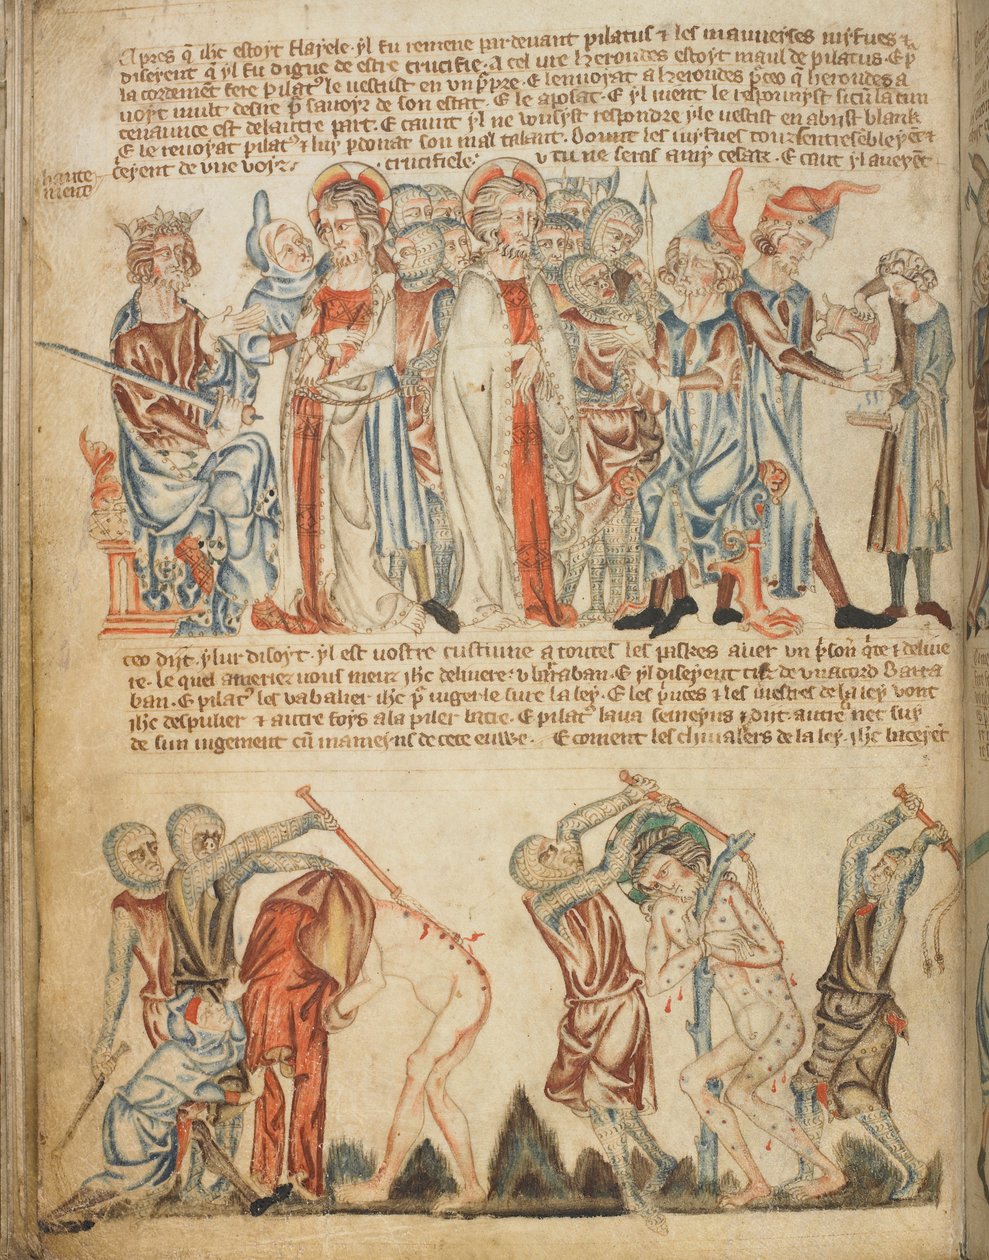 Apres q̃ ih̃c estoyt flayele · yl fu remene par devant pilatus ⁊ les mauueyses iuyfues ⁊
diseyent q̃ yl fu digne de estre crucifie · A cel ure heroudes estoyt maul de pilatus · E p̃
la cordement fere pilat⁹ le uestist en un p̃pre · E lenuoyat a heroudes p̃ceo q̃ heroudes a
uoyt mult desire p̃ sauoyr de son estat · E le aposat · E yl nient le responnyst sicũ la cun
tenaunce est de lautre part · E caunt yl ne uousyst respondre yl le uestist en blank
E le reuoyat pilat⁹ ⁊ luy p̃donat son mal talant · Dount les iuyfues touz ensemble
haute
ment
creyent de vne voyz · crucifiele · v tu ne seras amy cesare · E caut yl aueyẽt
ceo dyt · yl lur disoyt · yl est uostre custume a toutes les paskes auer un p̃son q̃te ⁊ deliue
re · le quel ameriez uous meuz ih̃c deliuere v baraban · E yl diseyent tuz de un acord bara
ban · E pilat⁹ les ua balier ih̃c p̃ iuger le sure la ley · E les p̃nces ⁊ les mestres de la ley vont
ih̃c despulier ⁊ autre foys a la piler batre · E pilat⁹ laua se meyns ⁊ dut · autre net suy
de sun iugement cũ ma meyns de cete euwe · E coment les chiualers de la ley ih̃c bateyẽt